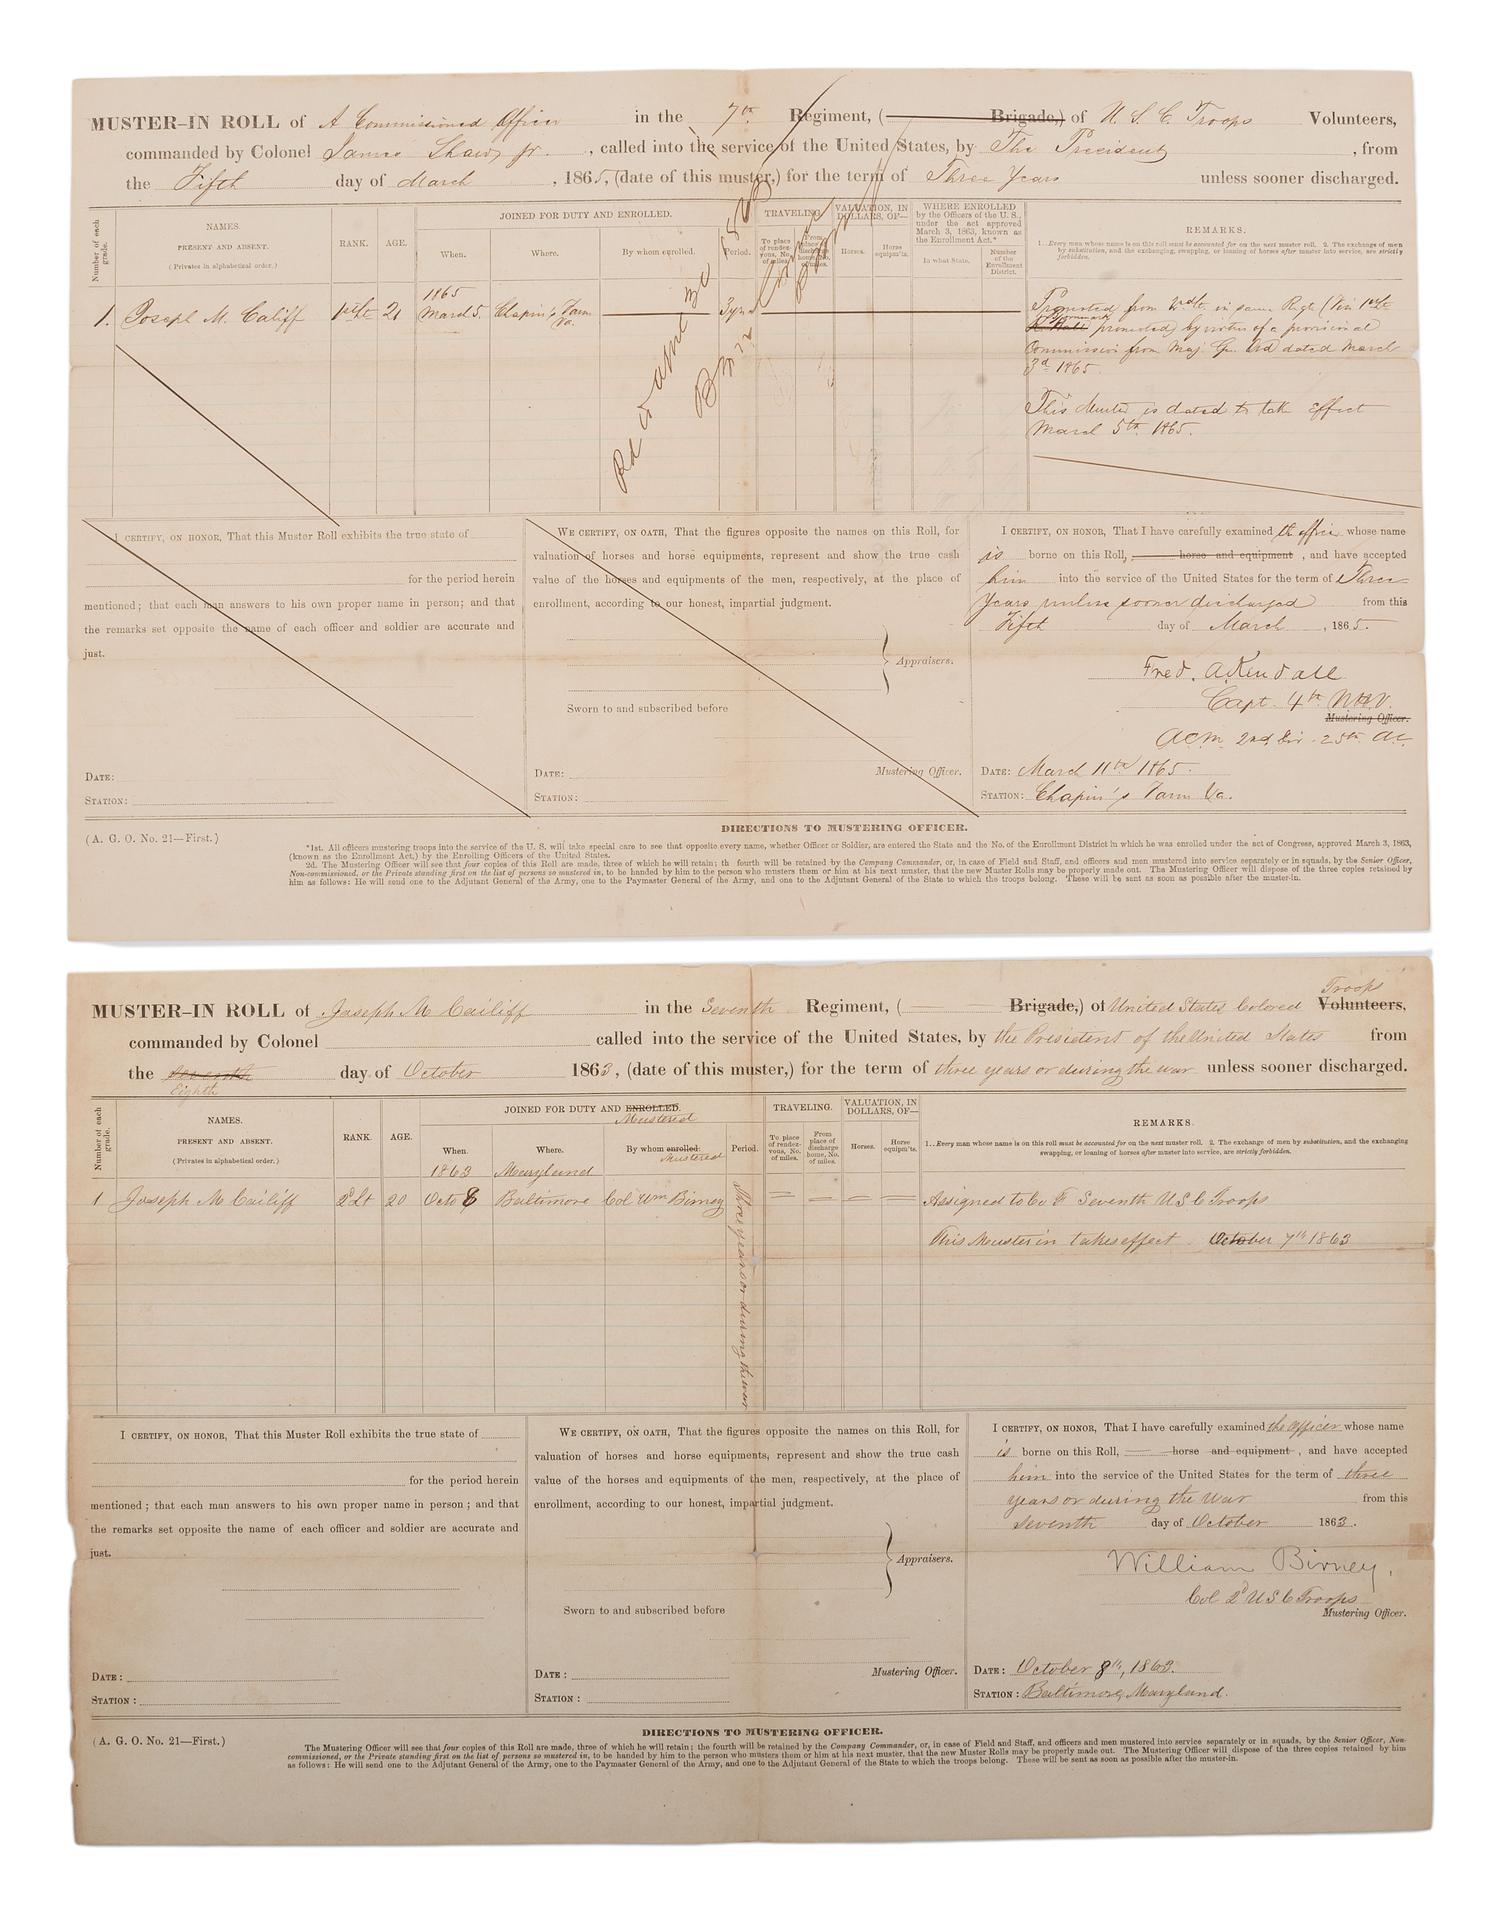 MUSTER-IN ROLL of A Commissioned Officer in the 7th Regiment, ( Brigade,) of U. S. C. Troops Volunteers,
commanded by Colonel James Shaw Jr. , called into the service of the United States, by The President , from
the Fifth day of March , 1865, (date of this muster,) for the term of Three Years unless sooner discharged.
Number of each grade.
NAMES
PRESENT AND ABSENT.
(Privates in alphabetical order.)
RANK.
AGE.
JOINED FOR DUTY AND ENROLLED.
When.
Where.
By whom enrolled.
Period.
TRAVELING.
To place of rendezvous, No. of miles.
From place of discharge home, No. of miles.
VALUATION, IN DOLLARS, OF—
Horses.
Horse equipm'ts.
WHERE ENROLLED
by the Officers of the U. S., under the act approved March 3, 1863, known as the Enrollment Act.*
In what State.
Number of the Enrollment District.
REMARKS.
1. .Every man whose name is on this roll must be accounted for on the next muster roll. 2. The exchange of men
by substitution, and the exchanging, swapping, or loaning of horses after muster into service, are strictly
forbidden.
1865
1. Joseph M. Califf 1st Lt 21 March 5. Chapin's Farm Va. 3 yrs
Promoted from 2nd Lt in same Regt (Vin 1st Lt
promoted) by virtue of a provisional
Commission from Maj. Gn. Ord dated March
3d 1865.
This Muster is dated to take effect
March 5th 1865.
I CERTIFY, ON HONOR, That this Muster Roll exhibits the true state of
for the period herein
mentioned; that each man answers to his own proper name in person; and that
the remarks set opposite the name of each officer and soldier are accurate and
just.
DATE:
STATION:
WE CERTIFY, ON OATH, That the figures opposite the names on this Roll, for
valuation of horses and horse equipments, represent and show the true cash
value of the horses and equipments of the men, respectively, at the place of
enrollment, according to our honest, impartial judgment.
Appraisers.
Sworn to and subscribed before
DATE: Mustering Officer.
STATION:
I CERTIFY, ON HONOR, That I have carefully examined the officer whose name
is borne on this Roll, horse and equipment , and have accepted
him into the service of the United States for the term of Three
Years unless sooner discharged from this
Fifth day of March , 1865.
Fred. A Kendall
Capt. 4th
Mustering Officer.
ACM 2nd Div. 25th AC.
DATE: March 11th 1865.
STATION: Chapin's Farm Va.
(A. G. O. No. 21—First.)
DIRECTIONS TO MUSTERING OFFICER.
*1st. All officers mustering troops into the service of the U. S. will take special care to see that opposite every name, whether Officer or Soldier, are entered the State and the No. of the Enrollment District in which he was enrolled under the act of Congress, approved March 3, 1863,
(known as the Enrollment Act,) by the Enrolling Officers of the United States.
2d. The Mustering Officer will see that four copies of this Roll are made, three of which he will retain; th fourth will be retained by the Company Commander, or, in case of Field and Staff, and officers and men mustered into service separately or in squads, by the Senior Officer,
Non-commissioned, or the Private standing first on the list of persons so mustered in, to be handed by him to the person who musters them or him at his next muster, that the new Muster Rolls may be properly made out. The Mustering Officer will dispose of the three copies retained by
him as follows: He will send one to the Adjutant General of the Army, one to the Paymaster General of the Army, and one to the Adjutant General of the State to which the troops belong. These will be sent as soon as possible after the muster-in.
Troops
MUSTER-IN ROLL of Joseph M Cailiff in the Seventh Regiment, ( Brigade,) of United States Colored Volunteers,
commanded by Colonel called into the service of the United States, by the President of the United States from
the Seventh day of October 1863, (date of this muster,) for the term of three years or during the war unless sooner discharged.
Eighth
Number of each grade.
NAMES.
PRESENT AND ABSENT.
(Privates in alphabetical order.)
RANK.
AGE.
JOINED FOR DUTY AND ENROLLED.
Mustered
When.
Where.
By whom enrolled.
Mustered
Period.
TRAVELING.
To place of rendezvous, No. of miles.
From place of discharge home, No. of miles.
VALUATION, IN DOLLARS, OF—
Horses.
Horse equipm'ts.
REMARKS.
1. .Every man whose name is on this roll must be accounted for on the next muster roll. 2. The exchange of men by substitution, and the exchanging
swapping, or loaning of horses after muster into service, are strictly forbidden.
1863 Maryland
1 Joseph M Cailiff 2d Lt 20 Octo 8 Baltimore Col Wm Birney
Three years or during the war
Assigned to Co F Seventh U S C Troops
This Muster in takes effect October 7th 1863
I CERTIFY, ON HONOR, That this Muster Roll exhibits the true state of
for the period herein
mentioned; that each man answers to his own proper name in person; and that
the remarks set opposite the name of each officer and soldier are accurate and
just.
DATE:
STATION:
WE CERTIFY, ON OATH, That the figures opposite the names on this Roll, for
valuation of horses and horse equipments, represent and show the true cash
value of the horses and equipments of the men, respectively, at the place of
enrollment, according to our honest, impartial judgment.
Appraisers.
Sworn to and subscribed before
DATE: Mustering Officer.
STATION:
I CERTIFY, ON HONOR, That I have carefully examined the Officer whose name
is borne on this Roll, horse and equipment , and have accepted
him into the service of the United States for the term of three
years or during the War from this
seventh day of October 1863.
William Birney,
Col 2d U S C Troops
Mustering Officer.
DATE: October 8th, 1863.
STATION: Baltimore, Maryland.
(A. G. O. No. 21—First.)
DIRECTIONS TO MUSTERING OFFICER.
The Mustering Officer will see that four copies of this Roll are made, three of which he will retain; the fourth will be retained by the Company Commander, or, in case of Field and Staff, and officers and men mustered into service separately or in squads, by the Senior Officer, Non-
commissioned, or the Private standing first on the list of persons so mustered in, to be handed by him to the person who musters them or him at his next muster, that the new Muster Rolls may be properly made out. The Mustering Officer will dispose of the three copies retained by him
as follows: He will send one to the Adjutant General of the Army, one to the Paymaster General of the Army, and one to the Adjutant General of the State to which the troops belong. These will be sent as soon as possible after the muster-in.